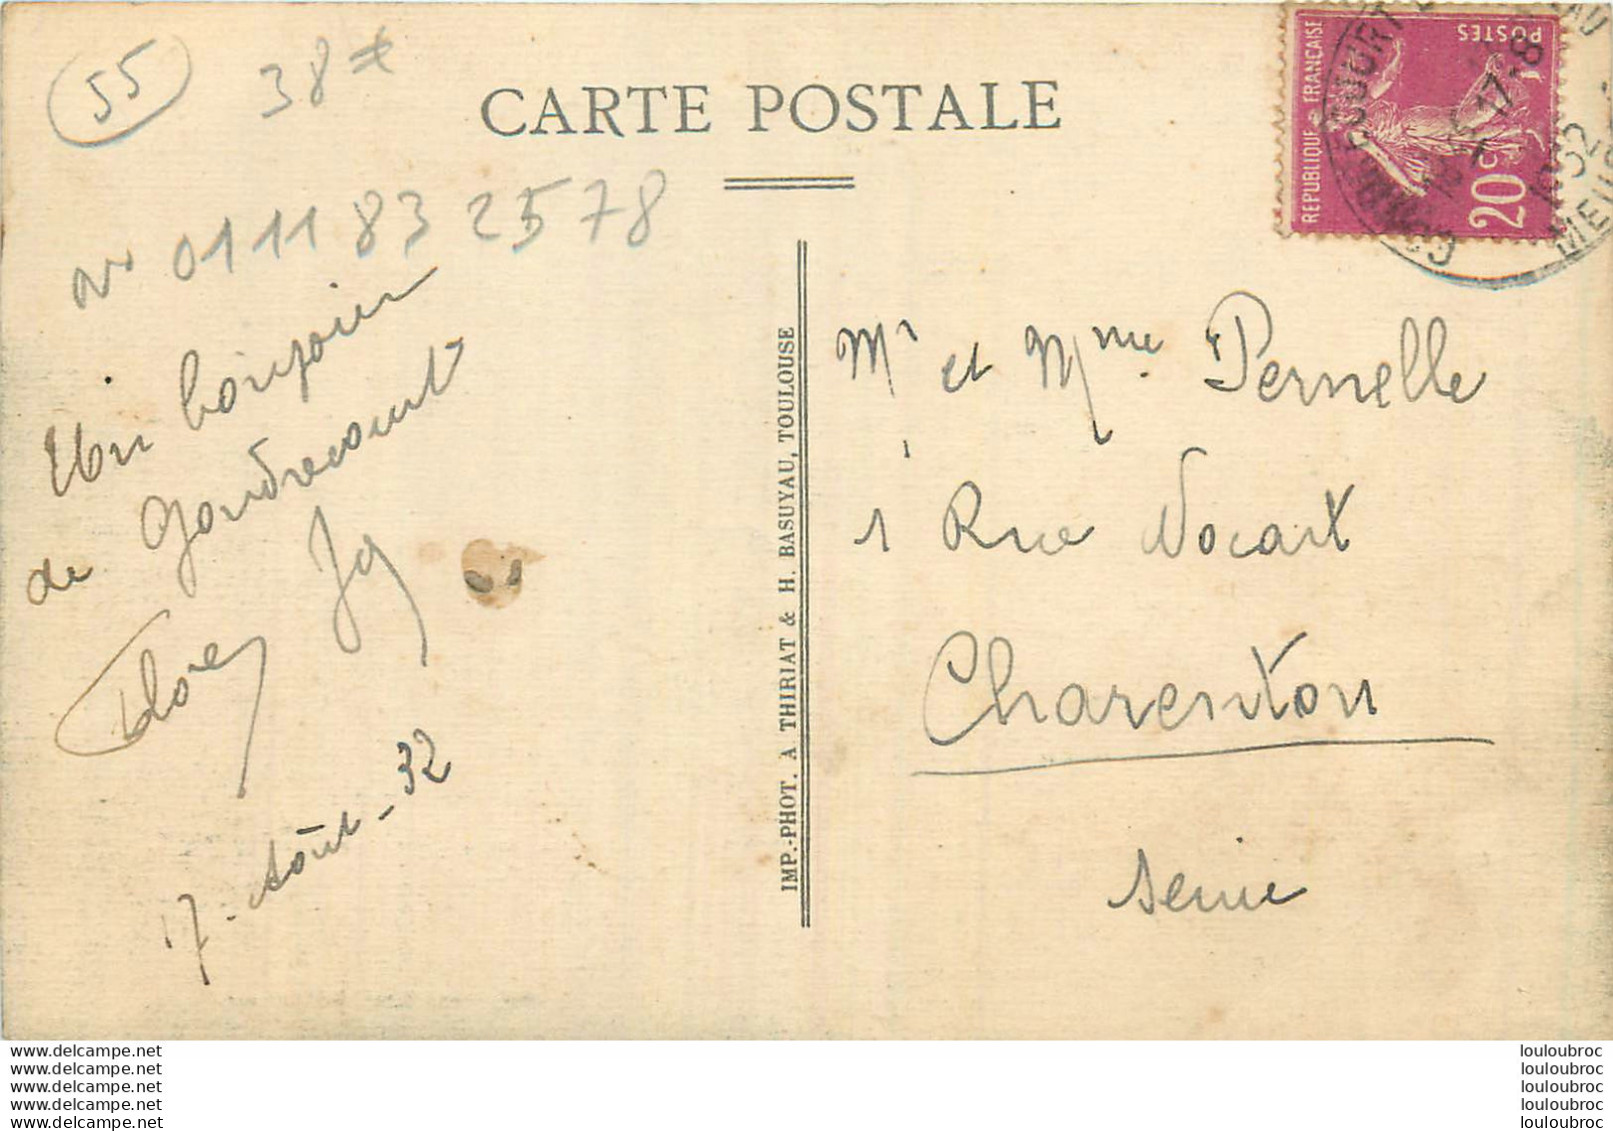 55
38
CARTE POSTALE
N° 0111 83 2578
Un bonjour
de Gondrecourt
17 - Août - 32
IMP.-PHOT. A THIRIAT & H. BASUYAU, TOULOUSE
REPUBLIQUE FRANÇAISE
POSTES
20c
GONDRECOURT
17-8
32
MEUSE
Mr et Mme Pernelle
1 Rue Nocart
Charenton
Seine
www.delcampe.net
www.delcampe.net
www.delcampe.net
www.delcampe.net
www.delcampe.net
louloubroc
louloubroc
louloubroc
louloubroc
louloubroc